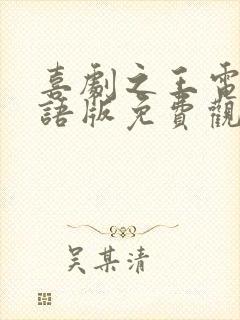 喜劇之王電
語版免費觀
吴某清